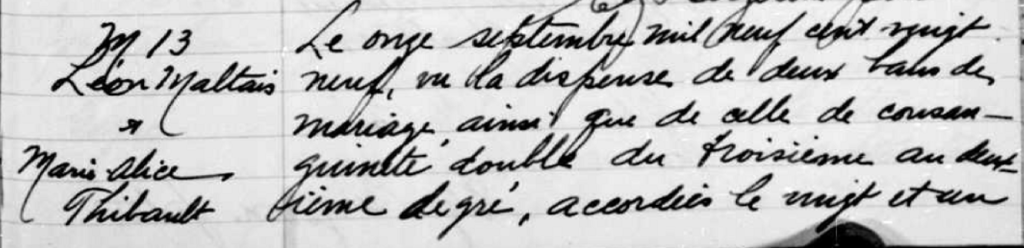 M 13
Léon Maltais
et
Marie-Alice
Thibault
Le onze septembre mil neuf cent vingt
neuf, vu la dispense de deux bans de
mariage, ainsi que de celle de consan-
guinité double du troisième au deux-
ième degré, accordées le vingt et un